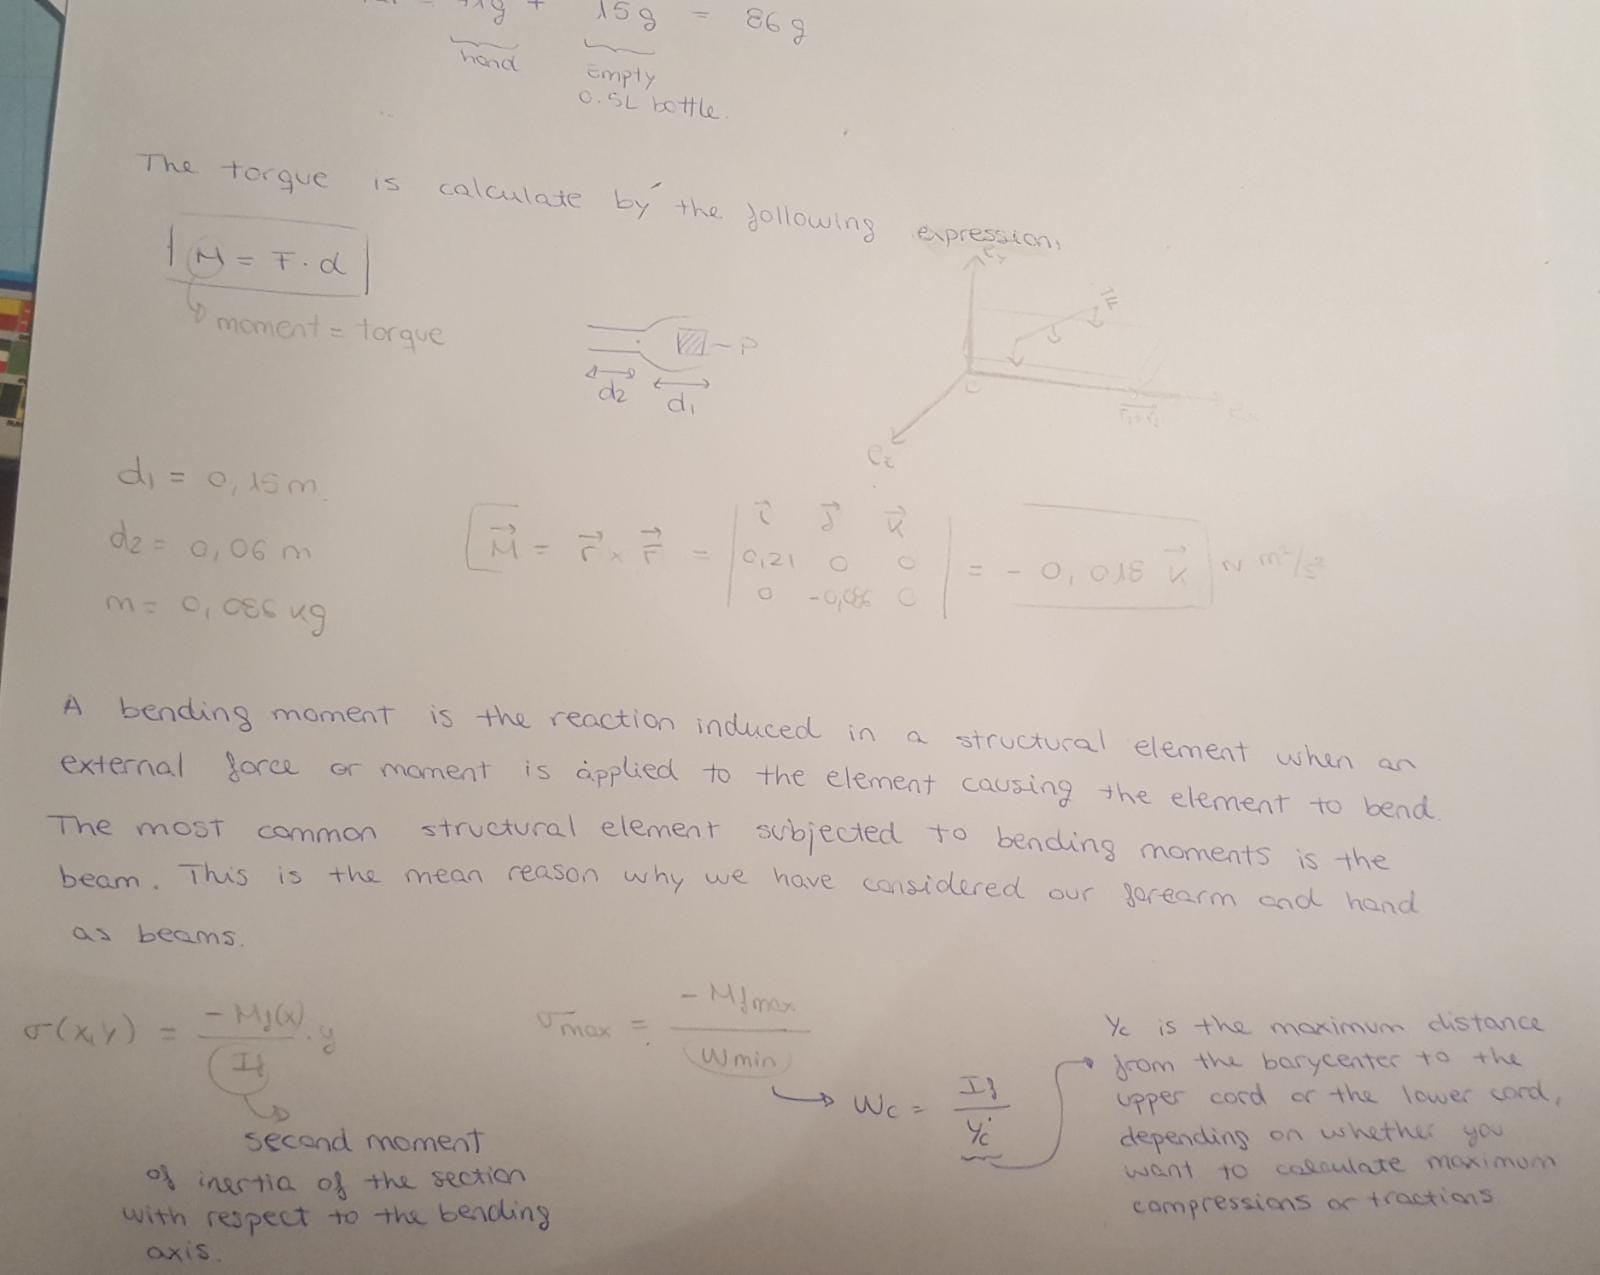 71g + 15g = 86g
hand Empty
0.5L bottle.
The torque is calculate by the following expression,
M = F·d
moment = torque
P
d2 d1
ey
F
o
r1+r2 ex
ez
d1 = 0,15m.
d2 = 0,06 m
m = 0,086 kg
M = r x F = | i j k | 0,21 0 0 | 0 -0,086 0 | = - 0,018 k N m²/s²
A bending moment is the reaction induced in a structural element when an
external force or moment is applied to the element causing the element to bend.
The most common structural element subjected to bending moments is the
beam. This is the mean reason why we have considered our forearm and hand
as beams.
σ(x,y) = -Mf(x)/If · y
second moment
of inertia of the section
with respect to the bending
axis.
σmax = -Mfmax/Wmin
Wc = If/Yc
Yc is the maximum distance
from the barycenter to the
upper cord or the lower cord,
depending on whether you
want to calculate maximum
compressions or tractions